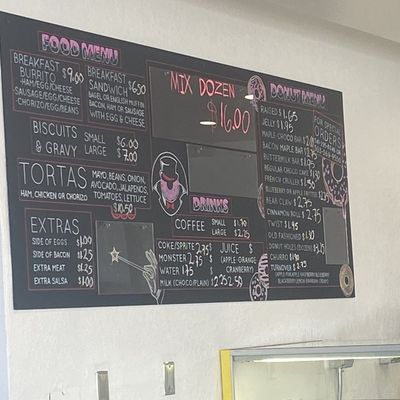 FOOD MENU
BREAKFAST BURRITO $9.00
HAM/EGG/CHEESE
SAUSAGE/EGG/CHEESE
CHORIZO/EGG/BEANS
BREAKFAST SANDWICH $6.50
BAGEL OR ENGLISH MUFFIN
BACON, HAM OR SAUSAGE
WITH EGG & CHEESE
BISCUITS & GRAVY
SMALL $6.00
LARGE $7.00
TORTAS
HAM, CHICKEN OR CHORIZO
MAYO, BEANS, ONION,
AVOCADO, JALAPENOS,
TOMATOES, LETTUCE
$10.50
EXTRAS
SIDE OF EGGS $1.00
SIDE OF BACON $1.25
EXTRA MEAT $1.25
EXTRA SALSA $1.00
MIX DOZEN
$16.00
DRINKS
COFFEE
SMALL $1.70
LARGE $2.25
COKE/SPRITE 2.75
MONSTER 3.75
WATER 1.75
MILK (CHOCO/PLAIN) 2.25
JUICE $
(APPLE-ORANGE
CRANBERRY)
2.50
DONUT MENU
RAISED $1.65
JELLY $1.95
MAPLE CHOCO BAR
BACON MAPLE BAR
BUTTERMILK BAR
REGULAR CHOCO CAKE
FRENCH CRULLER
BLUEBERRY OR APPLE FRITTER
BEAR CLAW
CINNAMON ROLL
TWIST $1.95
OLD FASHIONED
DONUT HOLES
CHURRO
TURNOVER
FOR SPECIAL
ORDERS